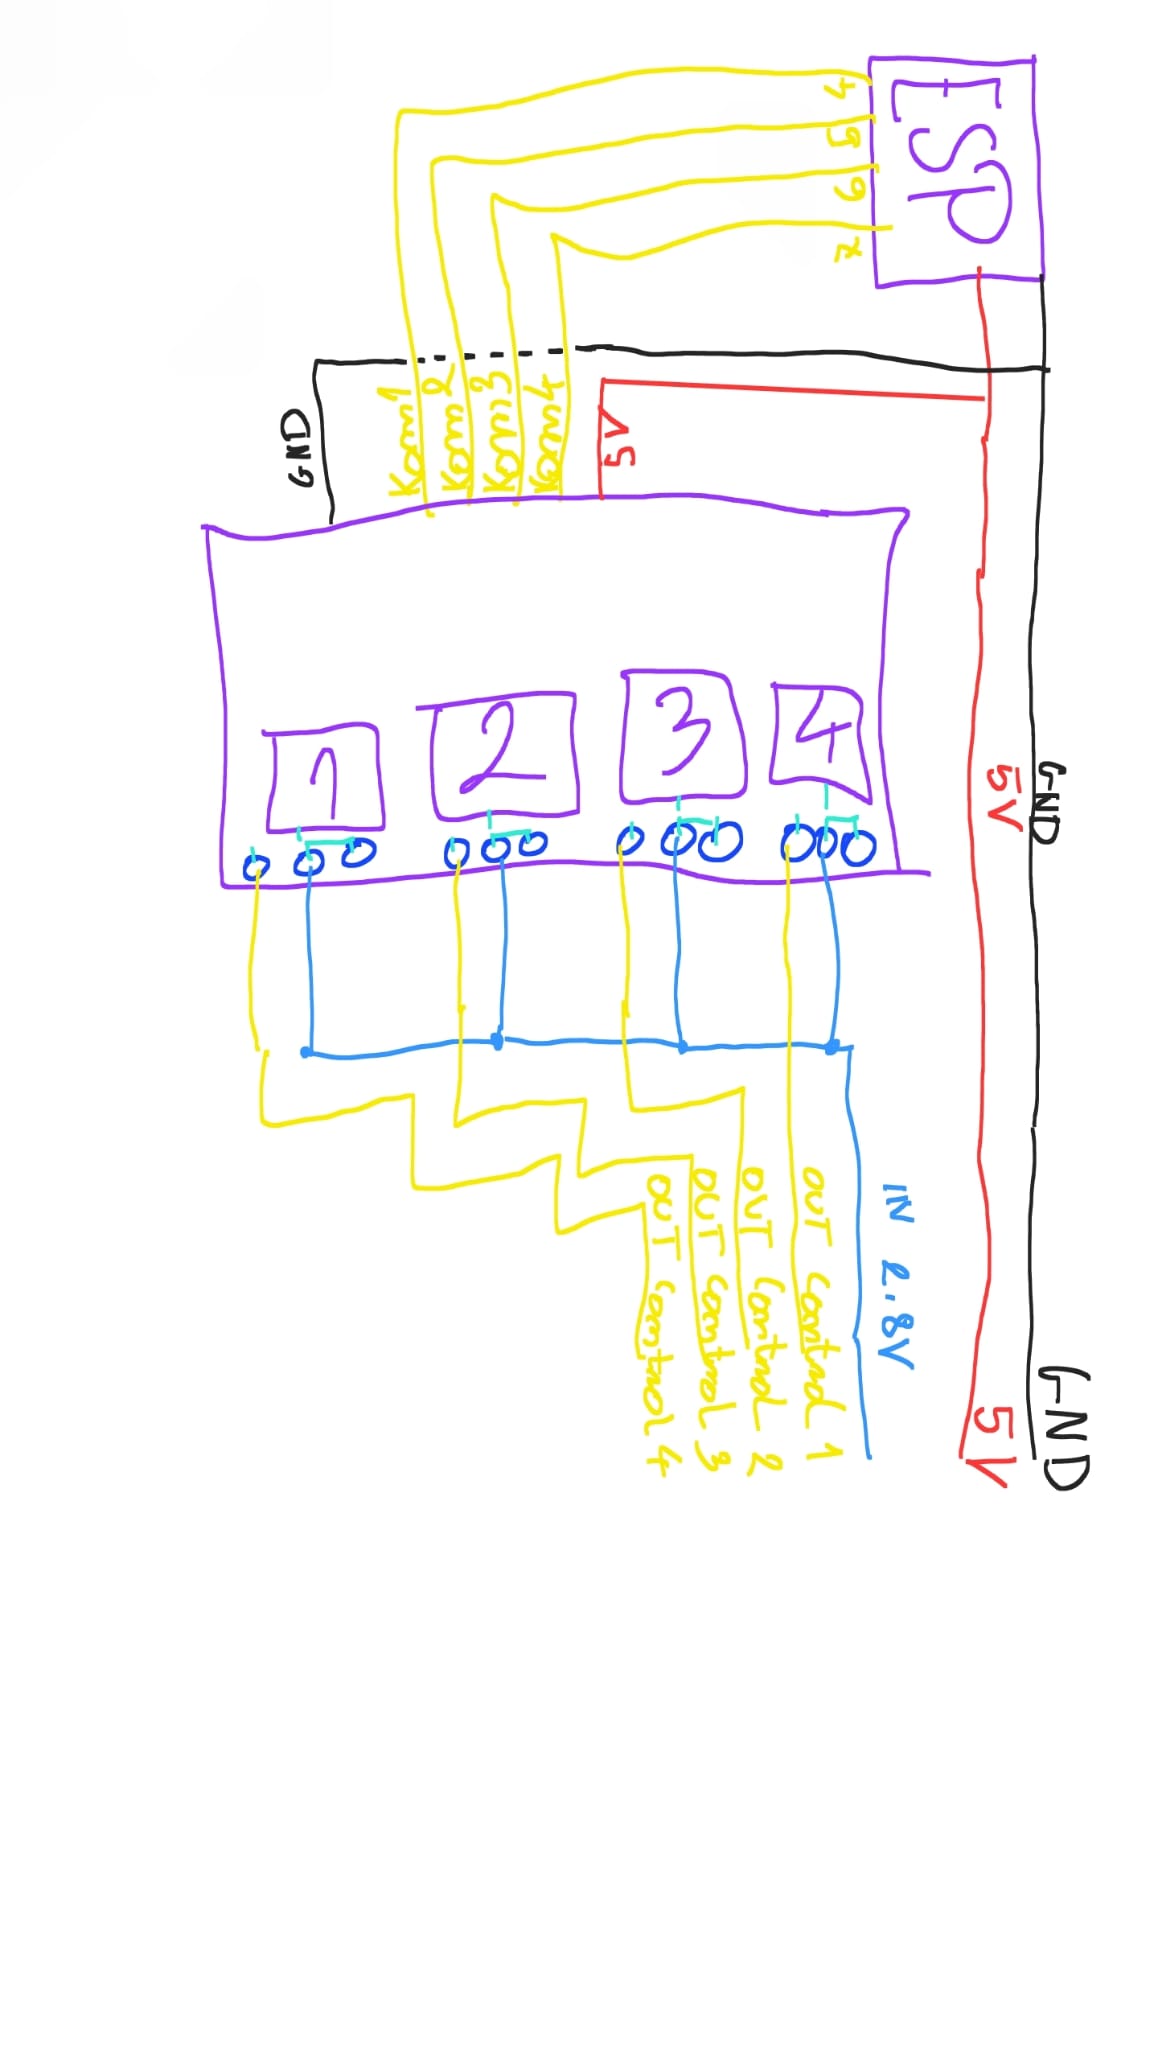 ESP
4
5
6
7
GND
Kom1
Kom2
Kom3
Kom4
5V
1
2
3
4
5V
GND
IN 2.8V
OUT Control 1
OUT Control 2
OUT Control 3
OUT Control 4
5V
GND